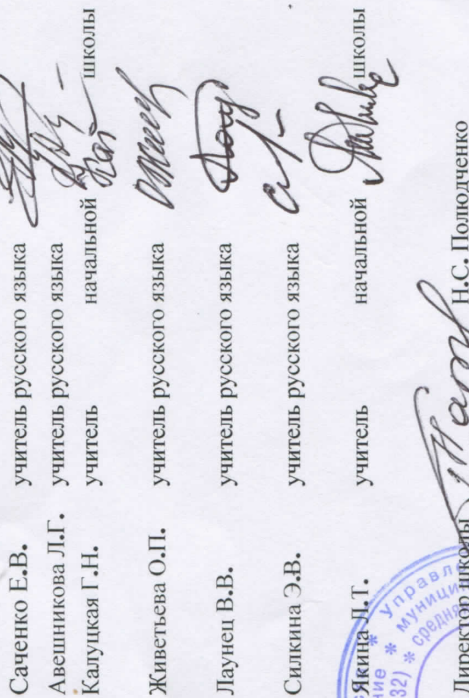 Саченко Е.В. учитель русского языка
Авешникова Л.Г. учитель русского языка
Калуцкая Г.Н. учитель начальной школы
Живетьева О.П. учитель русского языка
Лаунец В.В. учитель русского языка
Силкина Э.В. учитель русского языка
Якина Л.Т. учитель начальной школы
Директор школы Н.С. Полюдченко